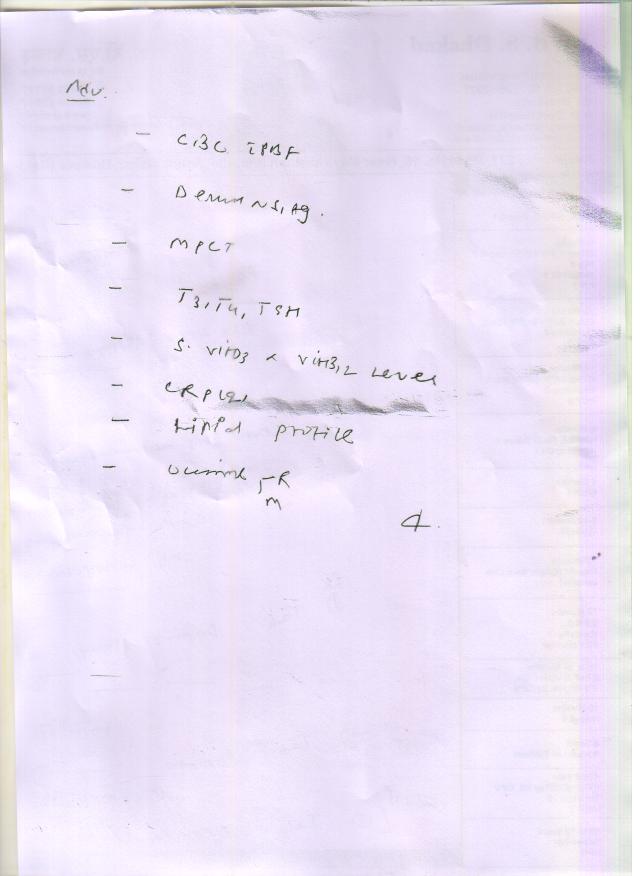 Adv.
- CBC & PBF
- Dengue NS1 Ag.
- MPCT
- T3, T4, TSH
- S. vit D3 & vit B12 Level
- CRP (Q)
- Lipid profile
- Urine - R
M